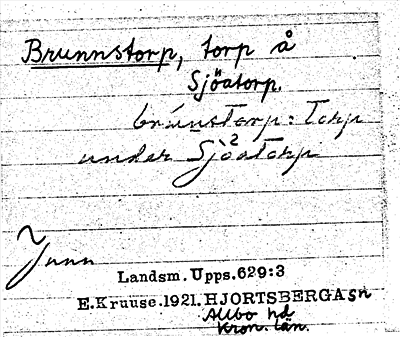 Brunnstorp, torp å
Sjöatorp.
brúnstorp: Torp
under Sjöatorp
Landsm. Upps. 629:3
E. Kruuse. 1921. HJORTSBERGA sn
Allbo hd
Kron. län.